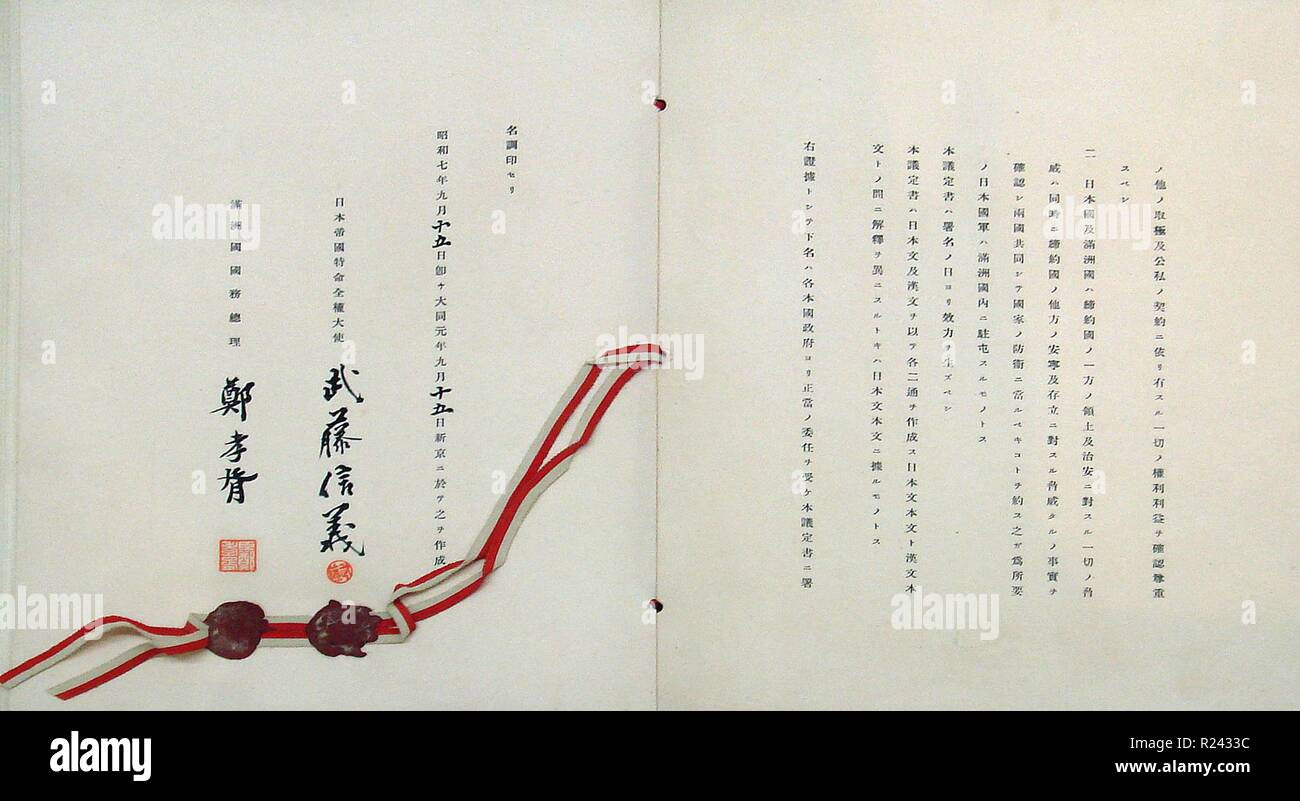 ノ他ノ取極及公私ノ契約ニ依リ有スル一切ノ權利利益ヲ確認尊重
スベシ
二 日本國及滿洲國ハ締約國ノ一方ノ領土及治安ニ對スル一切ノ脅
威ハ同時ニ締約國ノ他方ノ安寧及存立ニ對スル脅威タルノ事實ヲ
確認シ兩國共同シテ國家ノ防衞ニ當ルベキコトヲ約ス之ガ爲所要
ノ日本國軍ハ滿洲國內ニ駐屯スルモノトス
本議定書ハ署名ノ日ヨリ效力ヲ生ズベシ
本議定書ハ日本文及漢文ヲ以テ各二通ヲ作成ス日本文本文ト漢文本
文トノ間ニ解釋ヲ異ニスルトキハ日本文本文ニ據ルモノトス
右證據トシテ下名ハ各本國政府ヨリ正當ノ委任ヲ受ケ本議定書ニ署
名調印セリ
昭和七年九月十五日卽チ大同元年九月十五日新京ニ於テ之ヲ作成
日本帝國特命全權大使 武藤信義
滿洲國國務總理 鄭孝胥
alamy
Image ID: R2433C
www.alamy.com